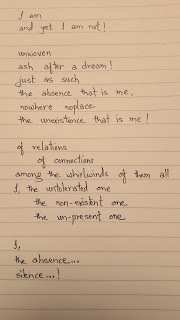 I am
and yet I am not!
unwoven
ash after a dream!
just as such
the absence that is me,
nowhere noplace
the unexistence that is me!
of relations
of connections
among the whirlwinds of them all
I, the untolerated one
the non-existent one
the un-present one
I,
the absence...
silence...!